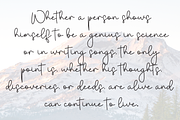 Whether a person shows
himself to be a genius in science
or in writing songs, the only
point is, whether his thoughts,
discoveries, or deeds, are alive and
can continue to live.